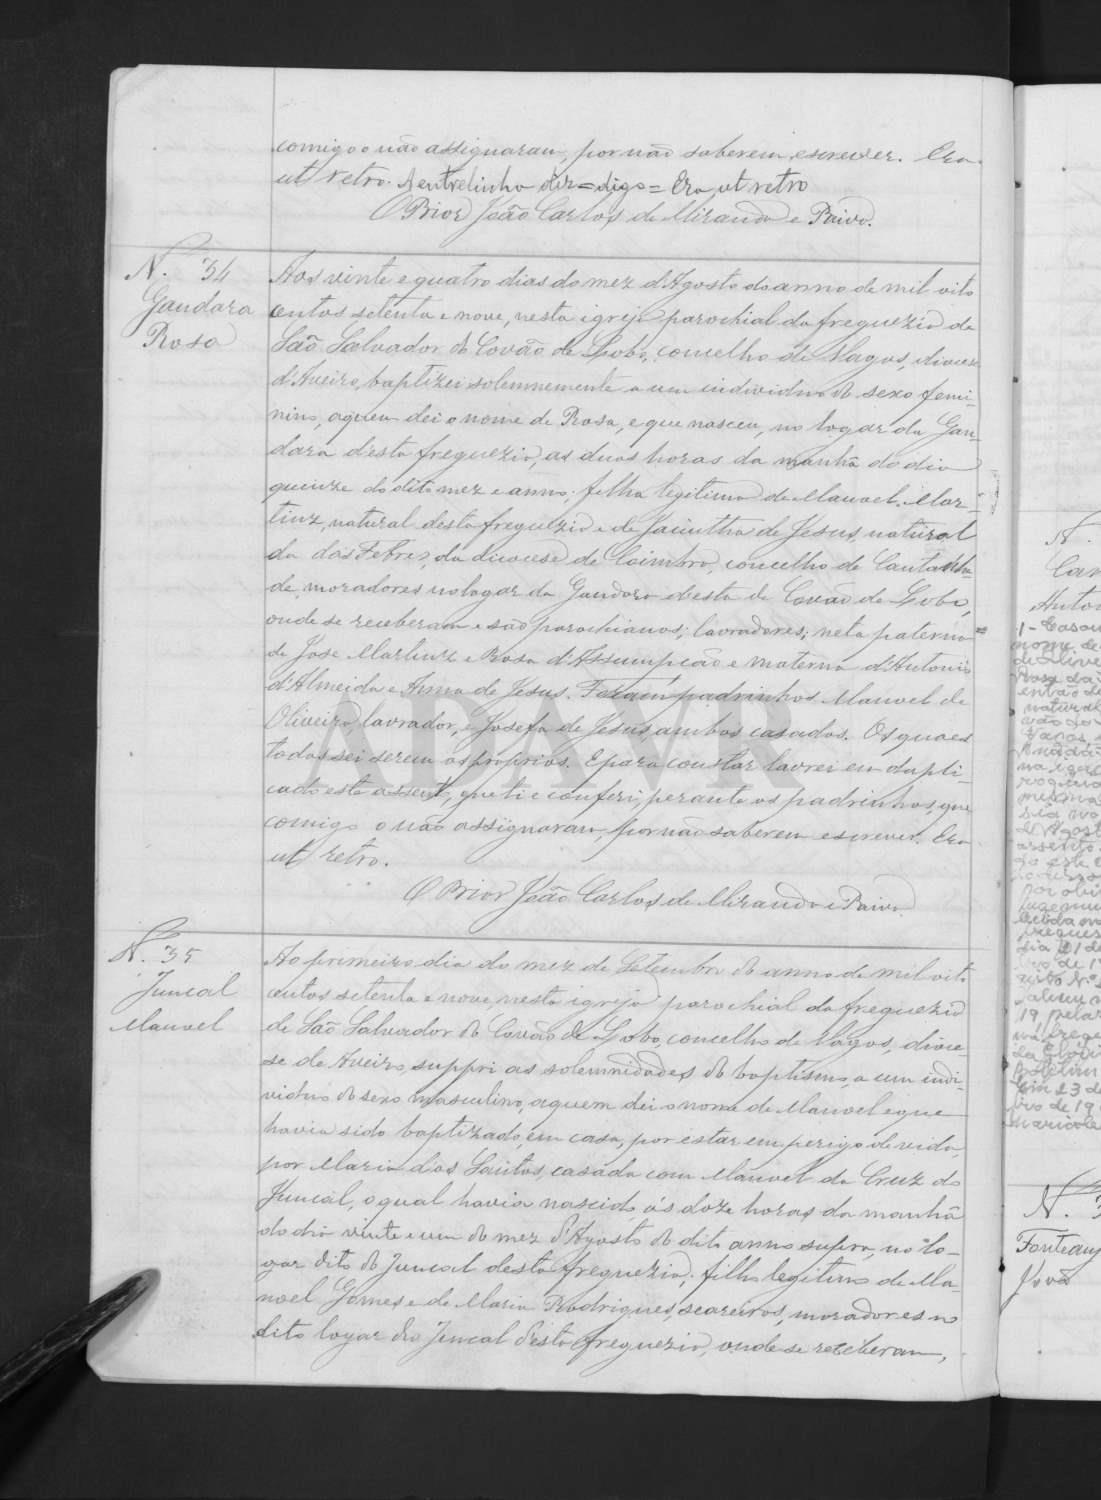 comigo o não assignaram, por não saberem escrever. Era
ut retro. A entrelinha diz=digo=Era ut retro
O Prior João Carlos de Miranda e Paiva.
N. 34
Gandara
Rosa
Aos vinte e quatro dias do mez d'Agosto do anno de mil oito
centos setenta e nove, nesta igreja parochial da freguezia de
São Salvador do Covão do Lobo, concelho de Vagos, diocese
d'Aveiro, baptizei solemnemente a um individuo do sexo femi-
nino, a quem dei o nome de Rosa, e que nasceu, no logar da Gan-
dara d'esta freguezia, as duas horas da manhã do dia
quinze do dito mez e anno; filha legitima de Manoel Mar-
tinz, natural desta freguezia e de Jacintha de Jesus, natural
da das Febres, da diocese de Coimbra, concelho de Cantanhe-
de, moradores no logar da Gandara desta do Covão do Lobo,
onde se receberam e são parochianos; lavradores; neta paterna
de José Martinz e Rosa d'Assumpção e materna d'Antonio
d'Almeida e Anna de Jesus. Foram padrinhos Manoel de
Oliveira, lavrador, e Josefa de Jesus, ambos casados. Os quaes
todos sei serem os proprios. E para constar lavrei em dupli-
cado este assento, que li e conferi, perante os padrinhos, que
comigo o não assignaram, por não saberem escrever. Era
ut retro.
O Prior João Carlos de Miranda e Paiva.
N. 35
Juncal
Manoel
Ao primeiro dia do mez de Setembro do anno de mil oito
centos setenta e nove, nesta igreja parochial da freguezia
de São Salvador do Covão do Lobo, concelho de Vagos, dioce-
se de Aveiro, suppri as solemnidades do baptismo, a um indi-
viduo do sexo masculino, a quem dei o nome de Manoel e que
havia sido baptizado, em casa, por estar em perigo de vida,
por Maria dos Santos, casada com Manoel da Cruz do
Juncal, o qual havia nascido, ás doze horas da manhã
do dia vinte e um do mez d'Agosto do dito anno supra, no lo-
gar dito do Juncal desta freguezia; filho legitimo de Ma-
noel Gomes e de Maria Rodrigues, seareiros, moradores no
dito logar do Juncal d'esta freguezia, onde se receberam,
ADAVR
N.
Anto
1 - Casou
N. 3
Fontany